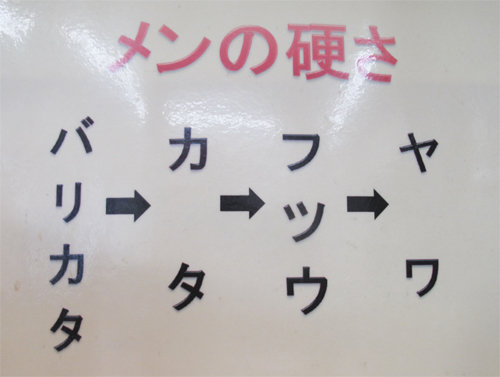 メンの硬さ
バリカタ→カタ→フツウ→ヤワ